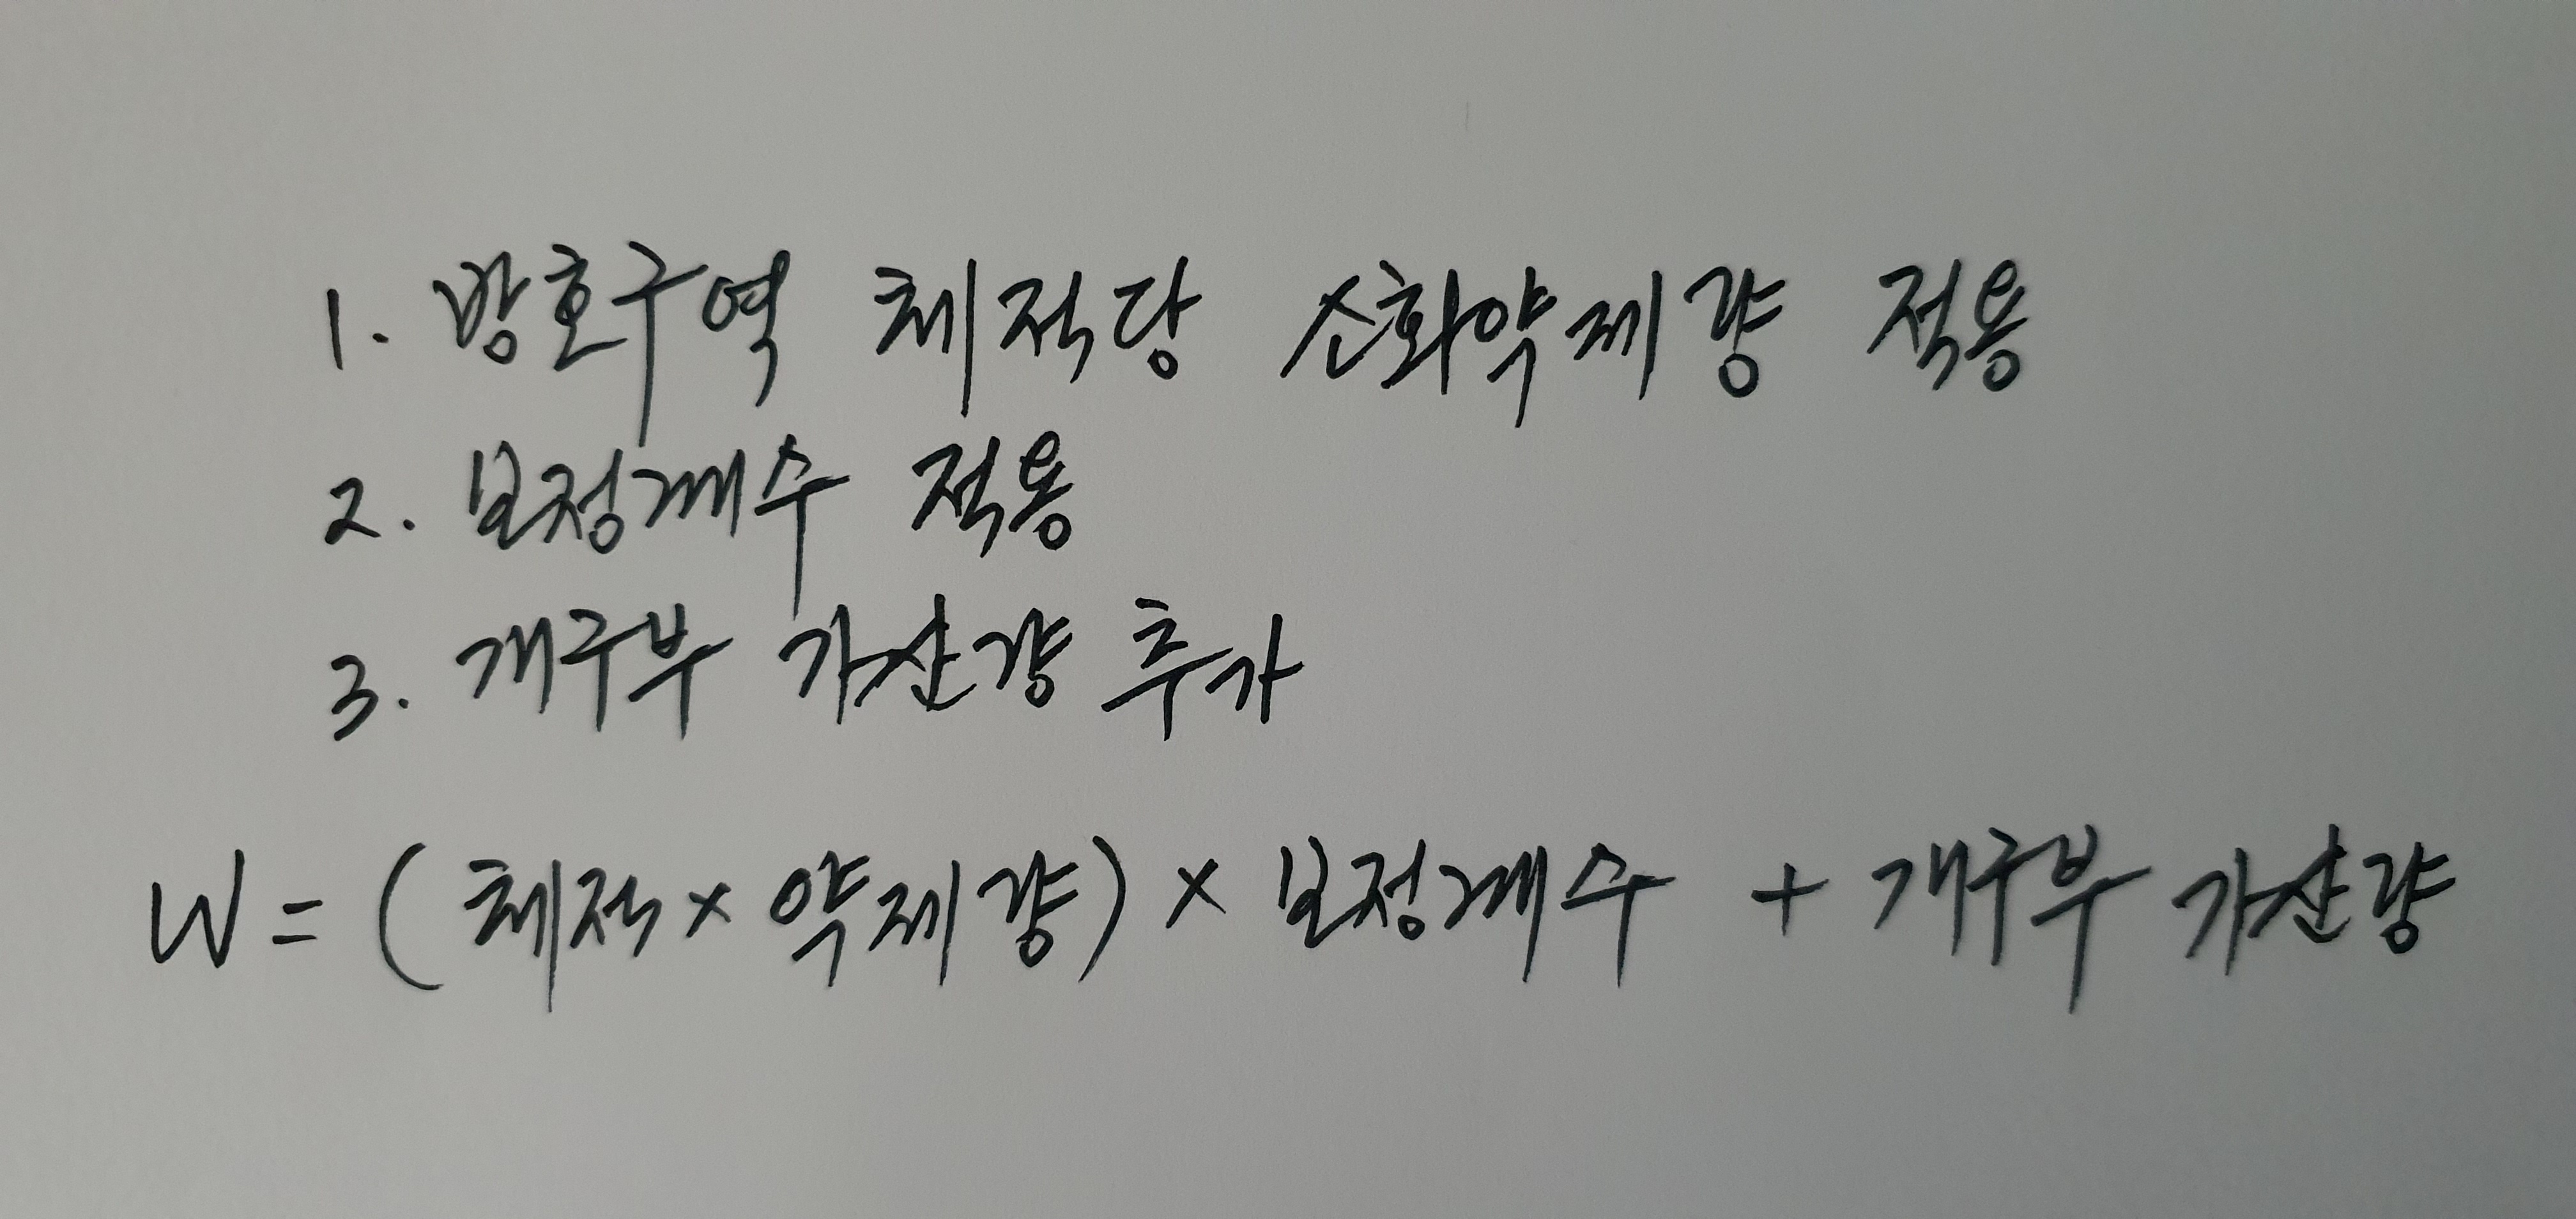 1. 방호구역 체적당 소화약제량 적용
2. 보정계수 적용
3. 개구부 가산량 추가
W = ( 체적 × 약제량 ) × 보정계수 + 개구부 가산량